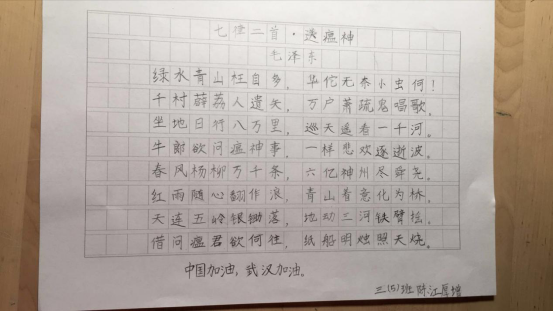 七律二首·送瘟神
毛泽东
绿水青山枉自多，华佗无奈小虫何！
千村薜荔人遗矢，万户萧疏鬼唱歌。
坐地日行八万里，巡天遥看一千河。
牛郎欲问瘟神事，一样悲欢逐逝波。
春风杨柳万千条，六亿神州尽舜尧。
红雨随心翻作浪，青山着意化为桥。
天连五岭银锄落，地动三河铁臂摇。
借问瘟君欲何往，纸船明烛照天烧。
中国加油，武汉加油。
三(5)班 陈江